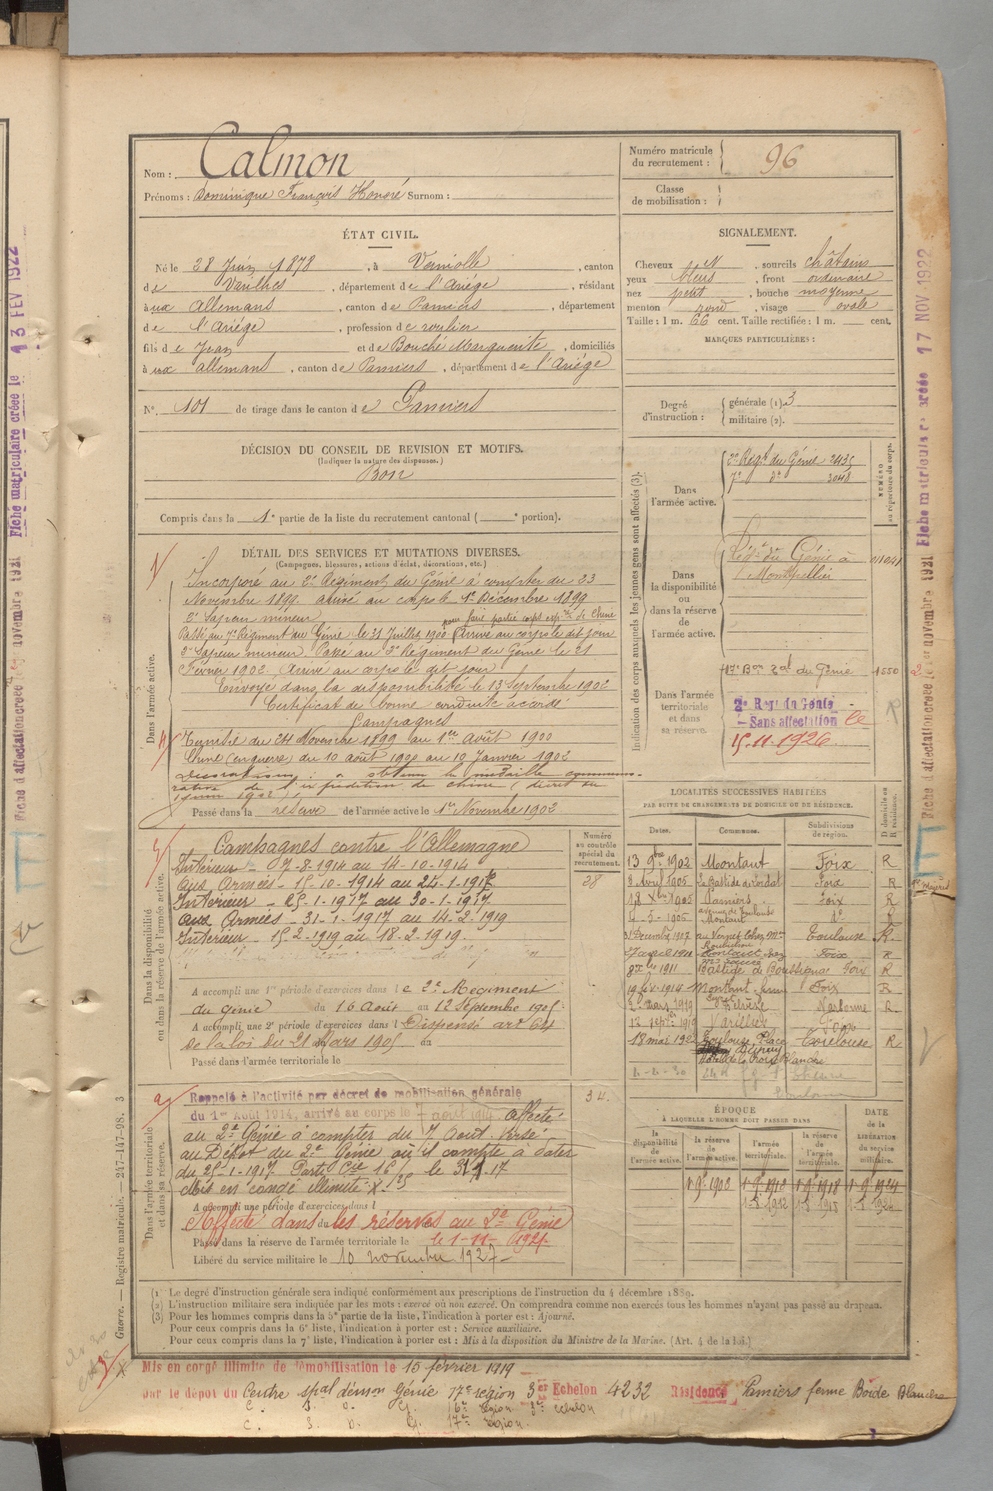 Nom : Calmon
Prénoms : Dominique François Honoré Surnom :
Numéro matricule du recrutement : 96
Classe de mobilisation :
ÉTAT CIVIL.
Né le 28 Juin 1878, à Verniolle, canton
de Varilhes, département de l'Ariège, résidant
à ux Allemans, canton de Pamiers, département
de l'Ariège, profession de roulier
fils de Jean et de Bouché Marguerite, domiciliés
à ux Allemans, canton de Pamiers, département de l'Ariège
N° 101 de tirage dans le canton de Pamiers
SIGNALEMENT.
Cheveux, sourcils châtains
yeux bleus, front ordinaire
nez petit, bouche moyenne
menton rond, visage ovale
Taille : 1 m. 66 cent. Taille rectifiée : 1 m. cent.
MARQUES PARTICULIÈRES :
Degré d'instruction : générale (1). 3
militaire (2).
DÉCISION DU CONSEIL DE REVISION ET MOTIFS.
(Indiquer la nature des dispenses.)
Bon
Compris dans la 1e partie de la liste du recrutement cantonal ( e portion).
DÉTAIL DES SERVICES ET MUTATIONS DIVERSES.
(Campagnes, blessures, actions d'éclat, décorations, etc.)
Dans l'armée active.
Incorporé au 2e Régiment du Génie à compter du 23
Novembre 1899. arrivé au corps le 1er Décembre 1899
2e Sapeur mineur
pour faire partie corps exp.re de Chine
Passé au 7e Régiment du Génie le 21 Juillet 1900 Arrivé au corps le dit jour
2e Sapeur mineur. Passé au 2e Régiment du Génie le 21
Février 1902. Arrivé au corps le dit jour
Envoyé dans la disponibilité le 13 Septembre 1902
Certificat de bonne conduite accordé
Campagnes
Tunisie du 24 Novembre 1899 au 1er Août 1900
Chine (en guerre) du 10 août 1900 au 19 Janvier 1902
Décorations : a obtenu la médaille commémo-
rative de l'expédition de Chine (décret du
Passé dans la réserve de l'armée active le 1er Novembre 1902
Indication des corps auxquels les jeunes gens sont affectés (3).
NUMÉRO au répertoire du corps.
Dans l'armée active.
2e Régt du Génie 2435
7e do 3048
Dans la disponibilité ou dans la réserve de l'armée active.
Régt du Génie à
Montpellier
Dans l'armée territoriale et dans sa réserve.
17e Bon Tal du Génie 1550
2e Regt du Génie
Sans affectation le
15.11.1926
Dans la disponibilité ou dans la réserve de l'armée active.
Numéro au contrôle spécial du recrutement.
28
Campagnes contre l'Allemagne
Intérieur - 7-8-1914 au 14-10-1914
Aux Armées - 15-10-1914 au 24-1-1917
Intérieur - 25-1-1917 au 30-1-1917
aux Armées - 31-1-1917 au 14-2-1919
Intérieur - 15-2-1919 au 18-2-1919
A accompli une 1re période d'exercices dans le 2e Régiment
du génie du 16 Août au 12 Septembre 1905
A accompli une 2e période d'exercices dans l Dispensé art
de la loi du 21 Mars 1905 au
Passé dans l'armée territoriale le
LOCALITÉS SUCCESSIVES HABITÉES
PAR SUITE DE CHANGEMENTS DE DOMICILE OU DE RÉSIDENCE.
Dates. Communes. Subdivisions de région. D domicile ou R résidence.
13 9bre 1902 Montaut Foix R
3 Avril 1905 La Bastide de Lordat Foix R
18 Xbre 1905 Pamiers Foix R
avenue de Toulouse
Montaut do R
31 Décembre 1907 au Vernet Toulouse R
Foix R
1911 Bastide de Bousignac Foix R
19 fév. 1914 Montaut Foix R
1919 Narbonne R
1919 Varilhes Foix
18 mai 1922 Toulouse Place Toulouse R
Dupuy
Croix Blanche
Dans l'armée territoriale et dans sa réserve.
34
Rappelé à l'activité par décret de mobilisation générale
du 1er Août 1914, arrivé au corps le 7 août 1914 affecté
au 2e Génie à compter du 7 Aout. Versé
au Dépôt du 2e Génie où il compte à dater
du 25-1-1917. Parti Cie 16/ le 31.1.17
Mis en congé illimité X
A accompli une période d'exercices dans l
Affecté dans les réserves au 2e Génie
Passé dans la réserve de l'armée territoriale le 1-11-1921
Libéré du service militaire le 10 novembre 1927
ÉPOQUE
À LAQUELLE L'HOMME DOIT PASSER DANS
DATE de la LIBÉRATION du service militaire.
la disponibilité de l'armée active. la réserve de l'armée active. l'armée territoriale. la réserve de l'armée territoriale.
(1) Le degré d'instruction générale sera indiqué conformément aux prescriptions de l'instruction du 4 décembre 1889.
(2) L'instruction militaire sera indiquée par les mots : exercé où non exercé. On comprendra comme non exercés tous les hommes n'ayant pas passé au drapeau.
(3) Pour les hommes compris dans la 5e partie de la liste, l'indication à porter est : Ajourné.
Pour ceux compris dans la 6e liste, l'indication à porter est : Service auxiliaire.
Pour ceux compris dans la 7e liste, l'indication à porter est : Mis à la disposition du Ministre de la Marine. (Art. 4 de la loi.)
Mis en congé illimité de démobilisation le 15 février 1919
par le dépôt du Centre spal démon Génie 17e région 3er Echelon 4232 Résidence Pamiers ferme Borde Blanche
C. S. D. G. 16e région 3e echelon
C. S. D. G. 17e région.
Guerre. — Registre matricule. — 247-147-98. 3
Fiche matriculaire créée le 13 FEV 1922
Fiche matriculaire créée 17 NOV. 1922
Fiche d'affectation créée le 1er novembre 1921